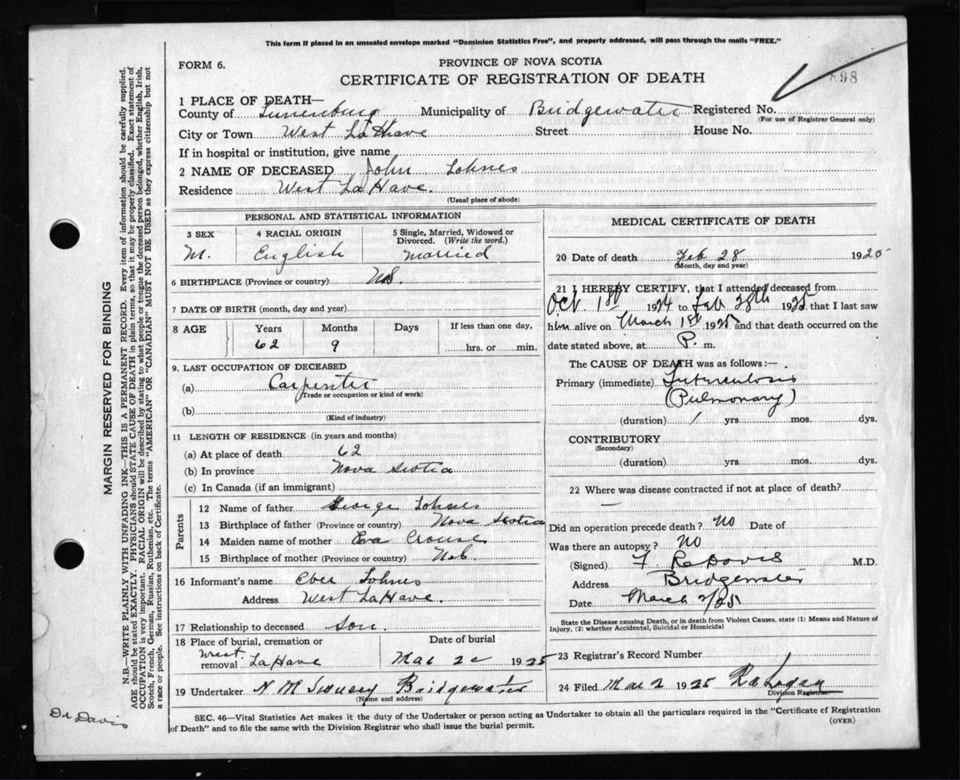 This form if placed in an unsealed envelope marked "Dominion Statistics Free", and properly addressed, will pass through the mails "FREE."
FORM 6.
PROVINCE OF NOVA SCOTIA
CERTIFICATE OF REGISTRATION OF DEATH
898
1 PLACE OF DEATH—
County of Lunenburg Municipality of Bridgewater Registered No.
(For use of Registrar General only)
City or Town West LaHave Street House No.
If in hospital or institution, give name
2 NAME OF DECEASED John Lohnes
Residence West LaHave.
(Usual place of abode)
PERSONAL AND STATISTICAL INFORMATION
3 SEX 4 RACIAL ORIGIN 5 Single, Married, Widowed or Divorced. (Write the word.)
M. English Married
6 BIRTHPLACE (Province or country) N.S.
7 DATE OF BIRTH (month, day and year)
8 AGE Years Months Days If less than one day,
62 9 hrs. or min.
9. LAST OCCUPATION OF DECEASED
(a) Carpenter
(Trade or occupation or kind of work)
(b)
(Kind of industry)
11 LENGTH OF RESIDENCE (in years and months)
(a) At place of death 62
(b) In province Nova Scotia
(c) In Canada (if an immigrant)
Parents
12 Name of father George Lohnes
13 Birthplace of father (Province or country) Nova Scotia
14 Maiden name of mother Eva Crouse
15 Birthplace of mother (Province or country) N.S.
16 Informant's name Eber Lohnes
Address West LaHave.
17 Relationship to deceased son.
18 Place of burial, cremation or removal West LaHave
Date of burial
Mar 2 1925
19 Undertaker Bridgewater
(Name and address)
MEDICAL CERTIFICATE OF DEATH
20 Date of death Feb 28 1925
(Month, day and year)
21 I HEREBY CERTIFY, that I attended deceased from
Oct 1st 1924 to Feb 28th 1925 that I last saw
him alive on March 1st 1925 and that death occurred on the
date stated above, at P. m.
The CAUSE OF DEATH was as follows:—
Primary (immediate) Tuberculosis
(Pulmonary)
(duration) 1 yrs mos. dys.
CONTRIBUTORY
(Secondary)
(duration) yrs. mos. dys.
22 Where was disease contracted if not at place of death?
Did an operation precede death? No Date of
Was there an autopsy? No
(Signed) F R Davis M.D.
Address Bridgewater
Date March 2/25
State the Disease causing Death, or in death from Violent Causes, state (1) Means and Nature of
Injury, (2) whether Accidental, Suicidal or Homicidal
23 Registrar's Record Number
24 Filed Mar 2 1925 Logan
Division Registrar
SEC. 46—Vital Statistics Act makes it the duty of the Undertaker or person acting as Undertaker to obtain all the particulars required in the "Certificate of Registration
of Death" and to file the same with the Division Registrar who shall issue the burial permit.
(OVER)
MARGIN RESERVED FOR BINDING
N.B.—WRITE PLAINLY WITH UNFADING INK—THIS IS A PERMANENT RECORD. Every item of information should be carefully supplied.
AGE should be stated EXACTLY. PHYSICIANS should STATE CAUSE OF DEATH in plain terms, so that it may be properly classified. Exact statement of
OCCUPATION is very important. RACIAL ORIGIN will be described by stating to what people or tongue the deceased person belonged, whether English, Irish,
Scotch, French, German, Russian, Ruthenian, etc. The terms "AMERICAN" OR "CANADIAN" MUST NOT BE USED as they express citizenship but not
a race or people. See instructions on back of Certificate.
Dr Davis